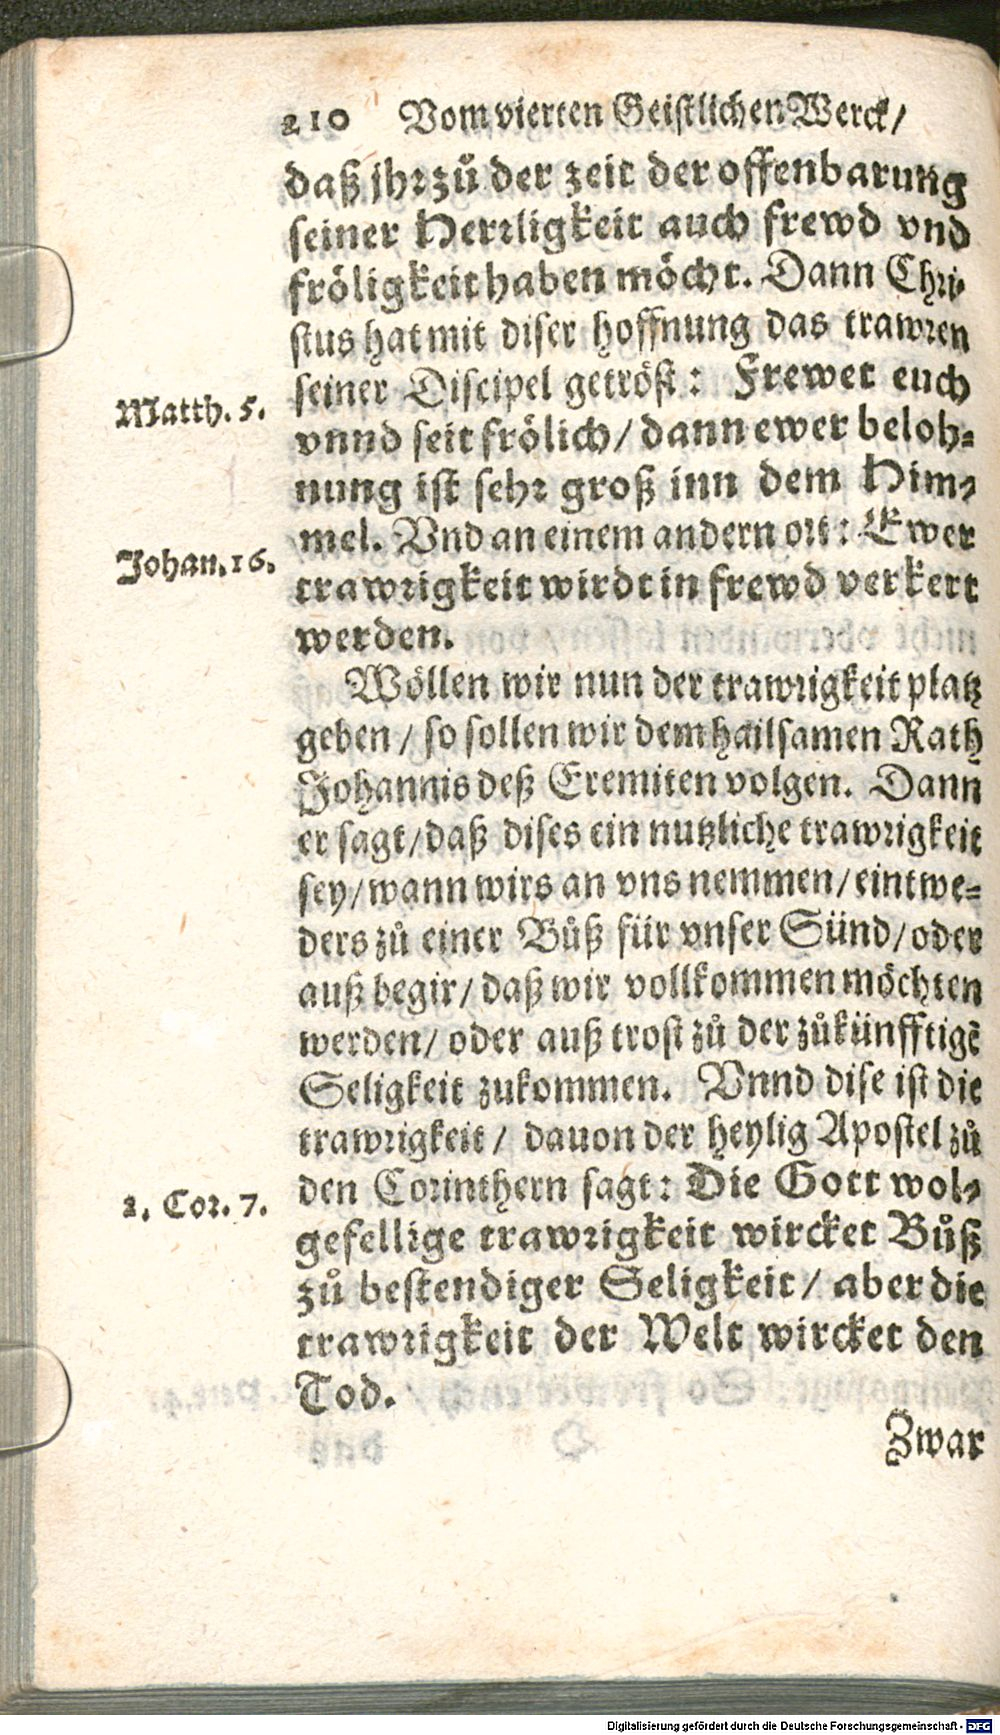 210 Vom vierten Geistlichen Werck/
daß jhr zů der zeit der offenbarung
seiner Herrligkeit auch frewd vnd
fröligkeit haben möcht. Dann Chri-
stus hat mit diser hoffnung das trawren
seiner Discipel getröst: Frewet euch
Matth. 5.
vnnd seit frölich/ dann ewer beloh-
nung ist sehr groß inn dem Him-
mel. Vnd an einem andern ort: Ewer
Johan. 16.
trawrigkeit wirdt in frewd verkert
werden.
Wöllen wir nun der trawrigkeit platz
geben/ so sollen wir dem hailsamen Rath
Johannis deß Eremiten volgen. Dann
er sagt/ daß dises ein nutzliche trawrigkeit
sey/ wann wirs an vns nemmen/ eintwe-
ders zů einer Bůß für vnser Sünd/ oder
auß begir/ daß wir vollkommen möchten
werden/ oder auß trost zů der zůkünfftigẽ
Seligkeit zukommen. Vnnd dise ist die
trawrigkeit/ dauon der heylig Apostel zů
2. Cor. 7.
den Corinthern sagt: Die Gott wol-
gefellige trawrigkeit wircket Bůß
zů bestendiger Seligkeit/ aber die
trawrigkeit der Welt wircket den
Tod.
Zwar
Digitalisierung gefördert durch die Deutsche Forschungsgemeinschaft - DFG